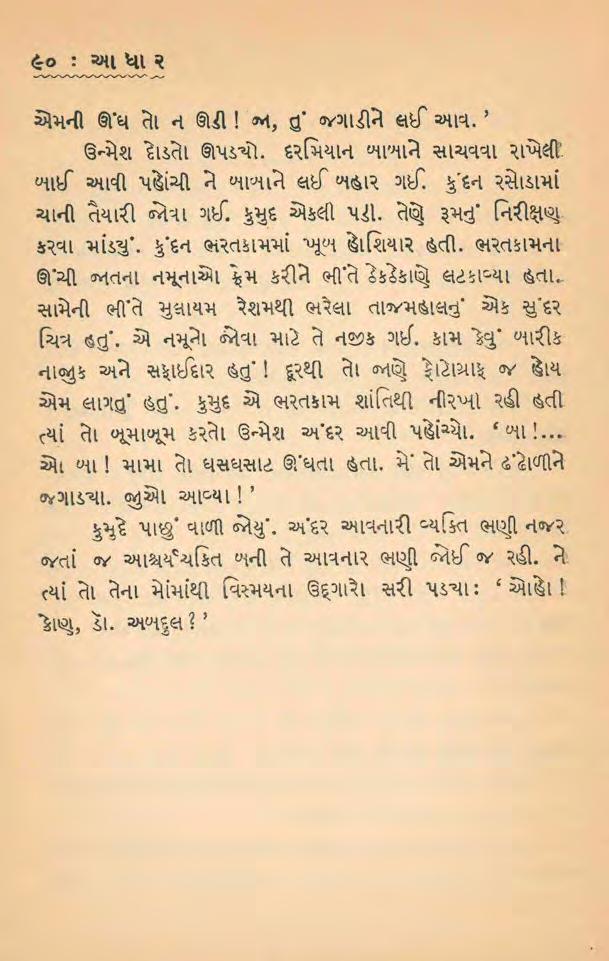 ૯૦ : આ ધા ર
એમની ઊંઘ તો ન ઊડી! જા, તું જગાડીને લઈ આવ.’
ઉન્મેશ દોડતો ઊપડ્યો. દરમિયાન બાબાને સાચવવા રાખેલી
બાઈ આવી પહોંચી ને બાબાને લઈ બહાર ગઈ. કુંદન રસોડામાં
ચાની તૈયારી જોવા ગઈ. કુમુદ એકલી પડી. તેણે રૂમનું નિરીક્ષણ
કરવા માંડયું. કુંદન ભરતકામમાં ખૂબ હોશિયાર હતી. ભરતકામના
ઊંચી જાતના નમૂનાઓ ફ્રેમ કરીને ભીંતે ઠેકઠેકાણે લટકાવ્યા હતા.
સામેની ભીંતે મુલાયમ રેશમથી ભરેલા તાજમહાલનું એક સુંદર
ચિત્ર હતું. એ નમૂનો જોવા માટે તે નજીક ગઈ. કામ કેવું બારીક
નાજુક અને સફાઈદાર હતું! દૂરથી તો જાણે ફોટોગ્રાફ જ હોય
એમ લાગતું હતું. કુમુદ એ ભરતકામ શાંતિથી નીરખી રહી હતી
ત્યાં તો બૂમાબૂમ કરતો ઉન્મેશ અંદર આવી પહોંચ્યો. ‘બા!...
ઓ બા! મામા તો ઘસઘસાટ ઊંઘતા હતા. મેં તો એમને ઢંઢોળીને
જગાડયા. જુઓ આવ્યા!’
કુમુદે પાછું વાળી જોયું. અંદર આવનારી વ્યક્તિ ભણી નજર
જતાં જ આશ્ચર્યચકિત બની તે આવનાર ભણી જોઈ જ રહી. ને
ત્યાં તો તેના મોંમાંથી વિસ્મયના ઉદ્દગારો સરી પડયાઃ ‘ઓહો!
કોણ, ડૉ. અબદુલ?’